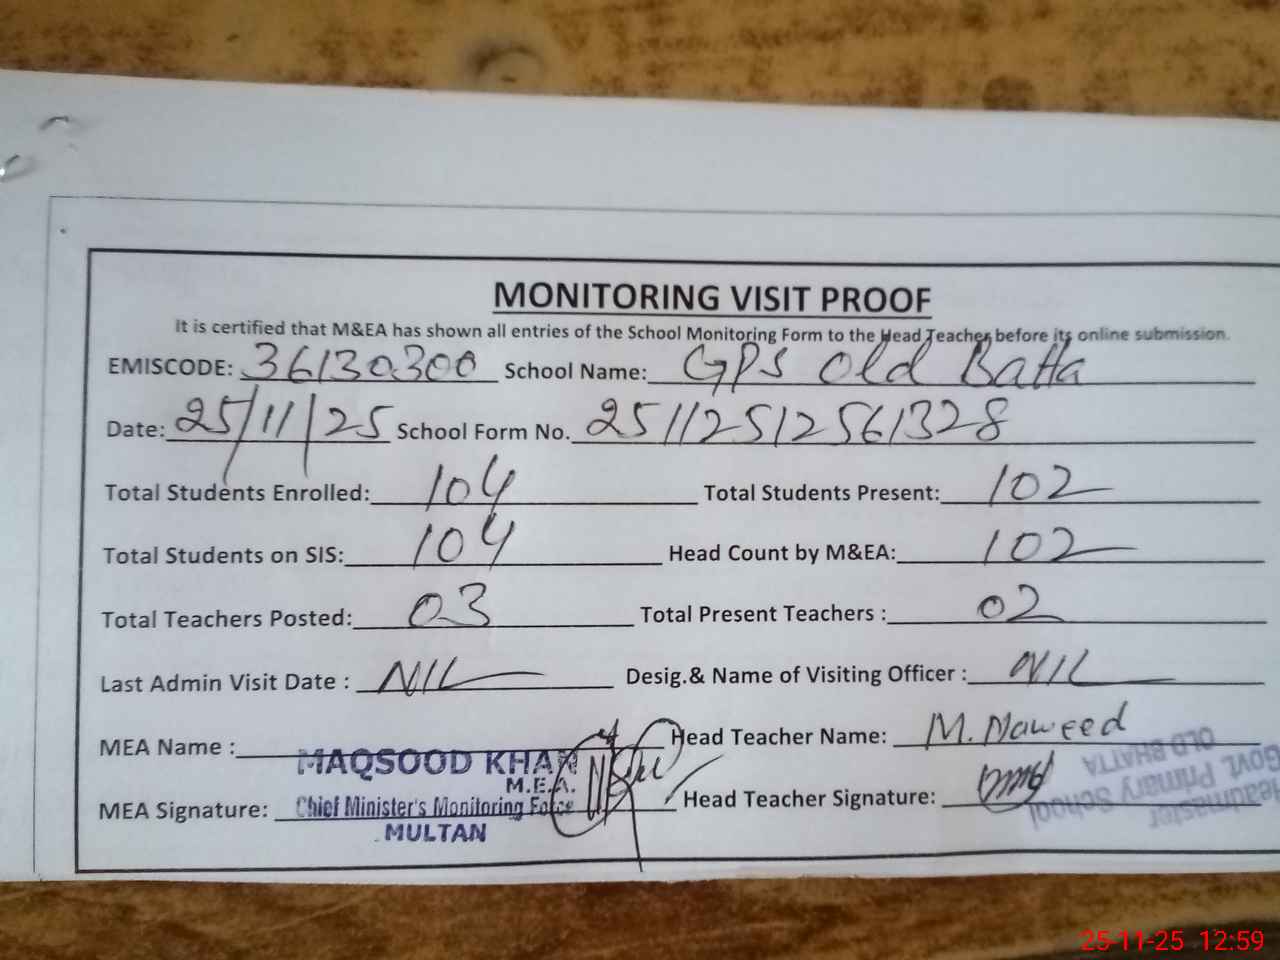 MONITORING VISIT PROOF
It is certified that M&EA has shown all entries of the School Monitoring Form to the Head Teacher before its online submission.
EMISCODE: 36130300 School Name: GPS Old Batta
Date: 25/11/25 School Form No. 25112512561328
Total Students Enrolled: 104 Total Students Present: 102
Total Students on SIS: 104 Head Count by M&EA: 102
Total Teachers Posted: 03 Total Present Teachers : 02
Last Admin Visit Date : NIL Desig.& Name of Visiting Officer : NIL
MEA Name : Head Teacher Name: M. Naweed
MAQSOOD KHAN
M.E.A.
MEA Signature: Chief Minister's Monitoring Force Head Teacher Signature:
MULTAN
Headmaster
Govt. Primary School
OLD BHATTA
25-11-25 12:59